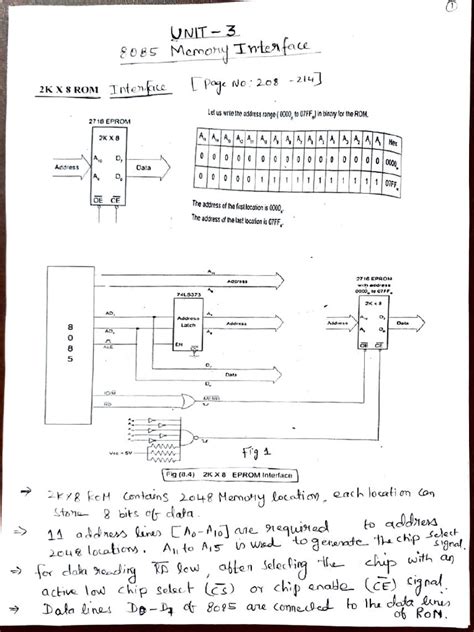 1
UNIT - 3
8085 Memory Interface
2K X 8 ROM Interface [Page No: 208 - 214]
Let us write the address range (0000H to 07FFH) in binary for the ROM.
2716 EPROM
2K X 8
Address
A10
A0
D7
D0
Data
OE CE
A15 A14 A13 A12 A11 A10 A9 A8 A7 A6 A5 A4 A3 A2 A1 A0 Hex
0 0 0 0 0 0 0 0 0 0 0 0 0 0 0 0 0000H
0 0 0 0 0 1 1 1 1 1 1 1 1 1 1 1 07FFH
The address of the first location is 0000H
The address of the last location is 07FFH
8085
Address
74LS373
Address Latch
EN
Address
ALE
Data
RD
Vcc = 5V
2716 EPROM
with address
0000H to 07FFH
2K x 8
Address
Data
OE CE
Fig 1
Fig (8.4) 2K X 8 EPROM Interface
⇒ 2K×8 ROM contains 2048 Memory location, each location can
store 8 bits of data.
⇒ 11 address lines [A0-A10] are required to address
2048 locations. A11 to A15 is used to generate the chip select
signal.
⇒ for data reading RD low, after selecting the chip with an
active low chip select (CS) or chip enable (CE) signal.
⇒ Data lines D0-D7 of 8085 are connected to the data lines
of ROM.